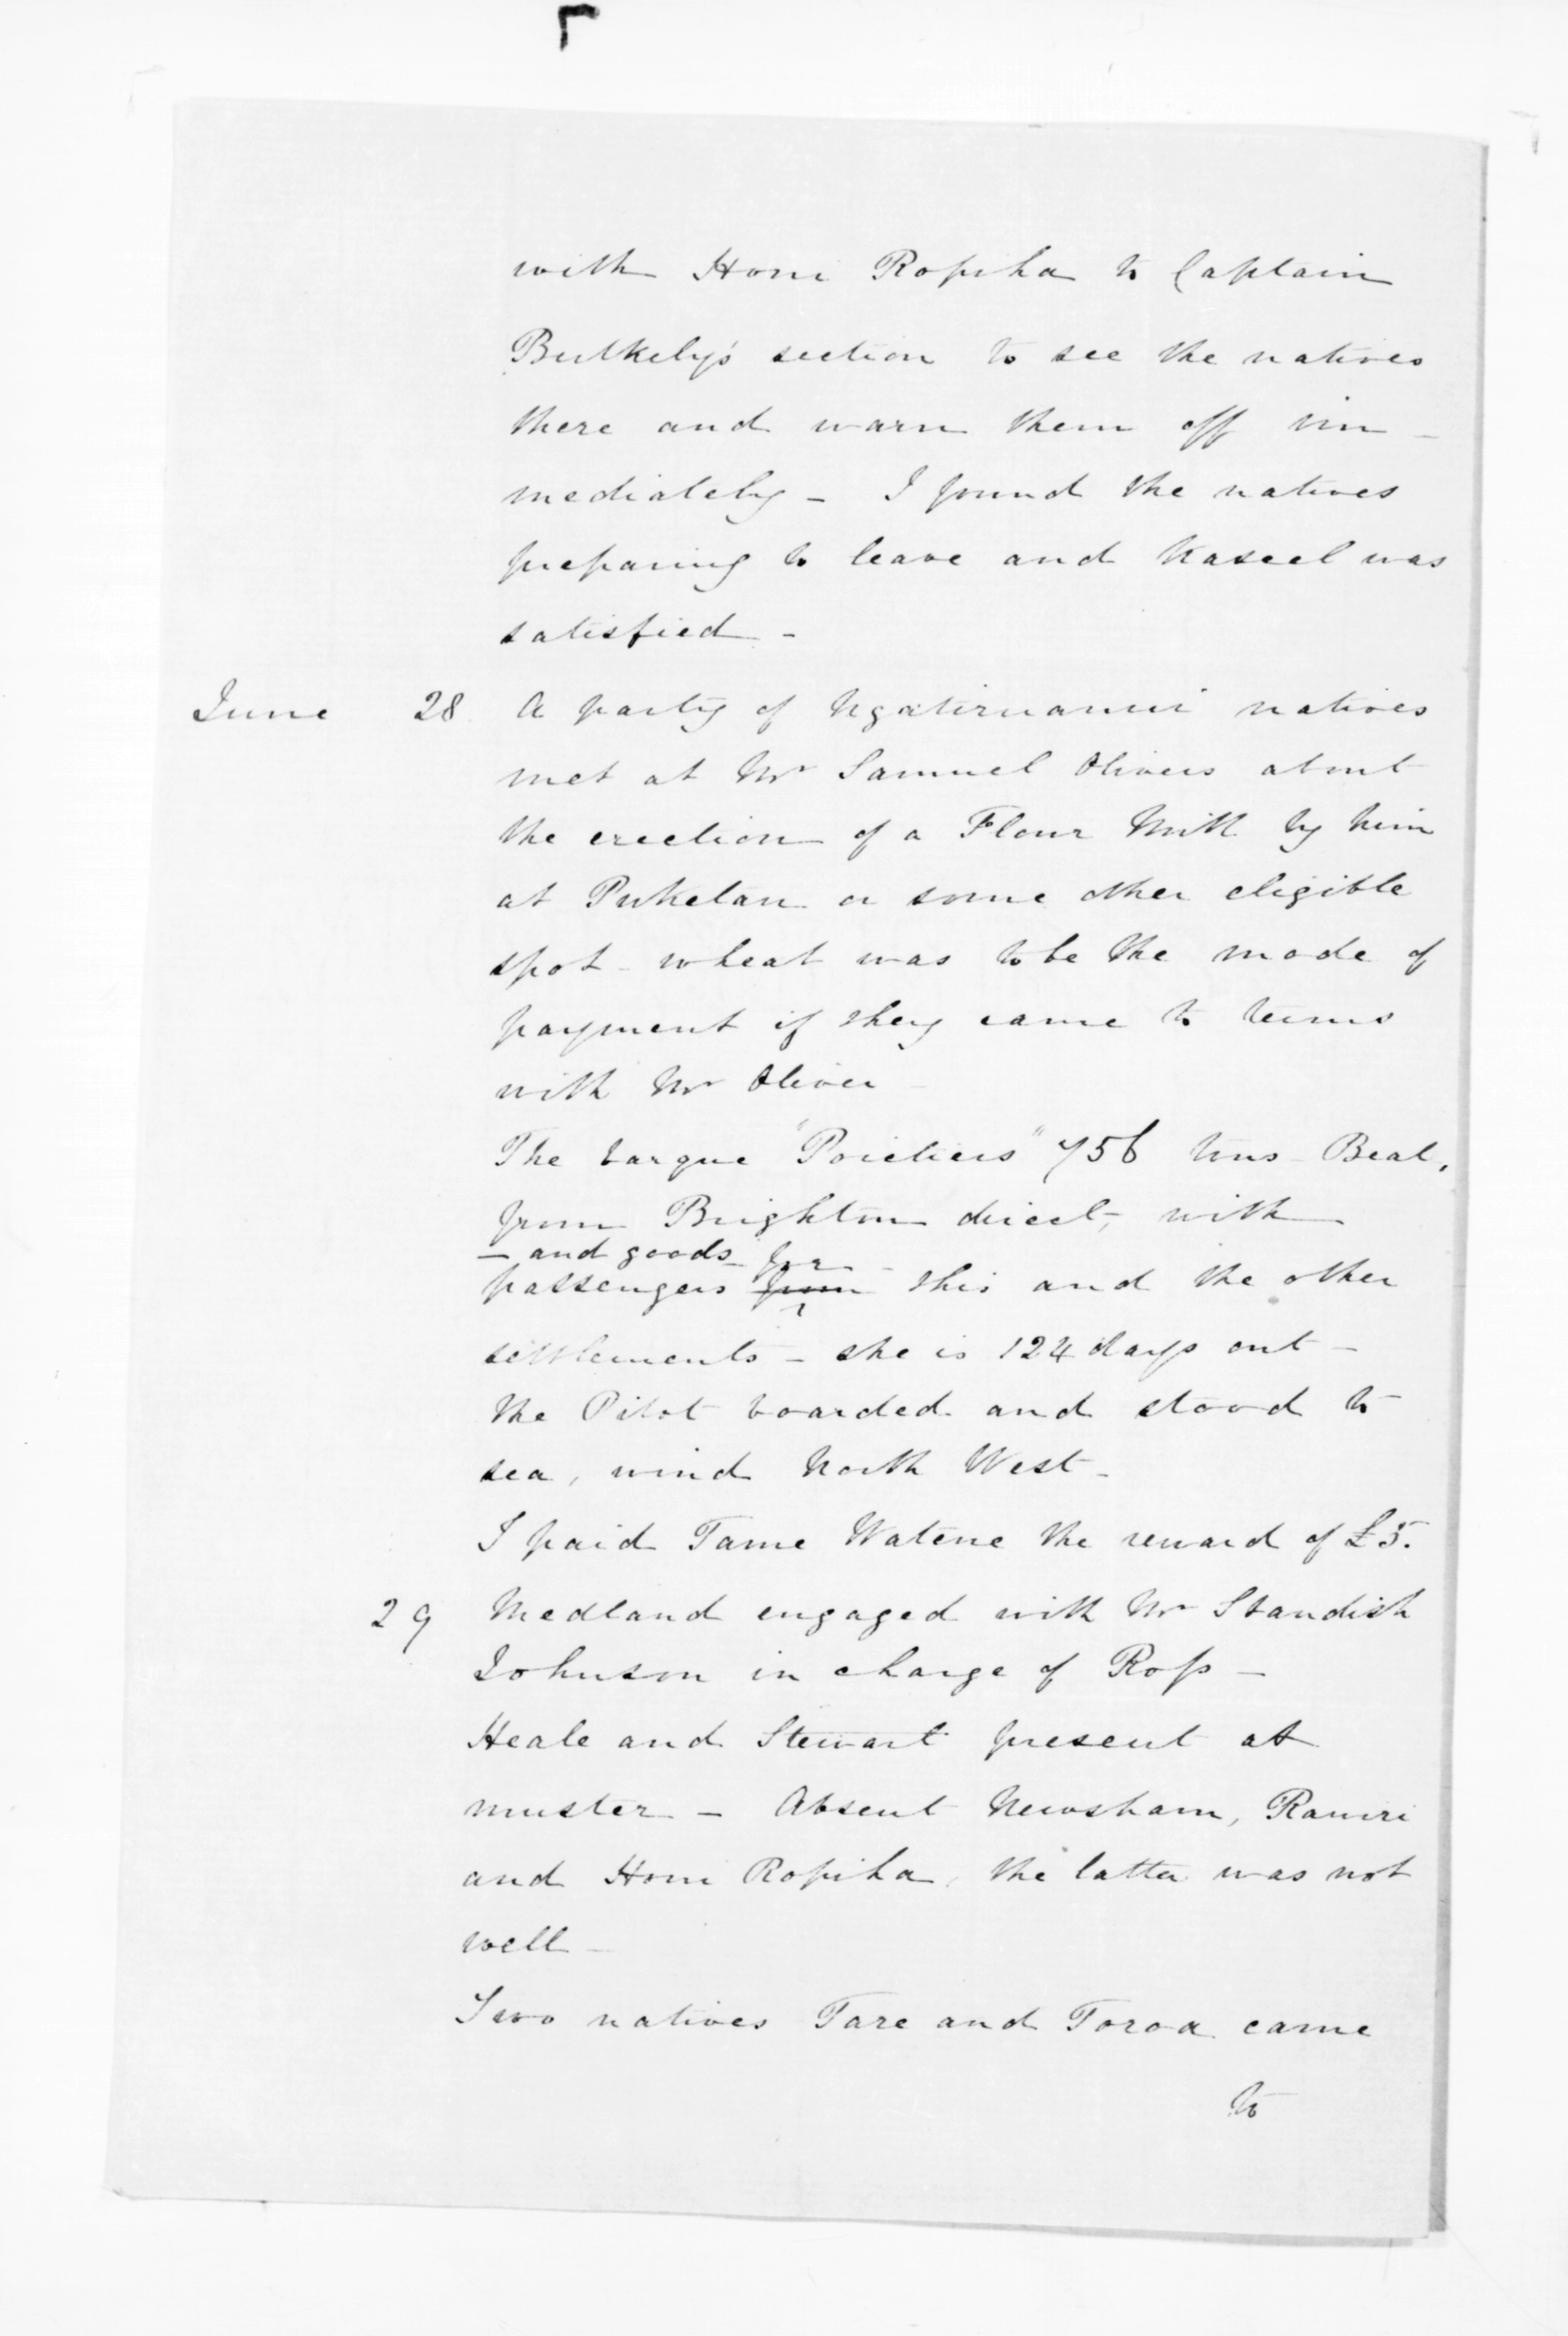 with Honi Ropiha to Captain
Bulkely's section to see the natives
there and warn them off im-
mediately - I found the natives
preparing to leave and Kaseel was
satisfied -
June 28 A party of Ngatiruanui natives
met at Mr Samuel Olivers about
the erection of a Flour Mill by him
at Puketau or some other eligible
spot - wheat was to be the mode of
payment if they came to terms
with Mr Oliver -
The barque "Poictiers" 756 tons Beal,
from Brighton direct, with
- and goods for -
passengers from this and the other
settlements - she is 124 days out -
the Pilot boarded and stood to
sea, wind North West -
I paid Tame Watene the reward of £5.
29 Medland engaged with Mr Standish
Johnson in charge of Ross -
Heale and Stewart present at
muster - Absent Newsham, Rawiri
and Honi Ropiha, the latter was not
well -
Two natives Tare and Toroa came
to